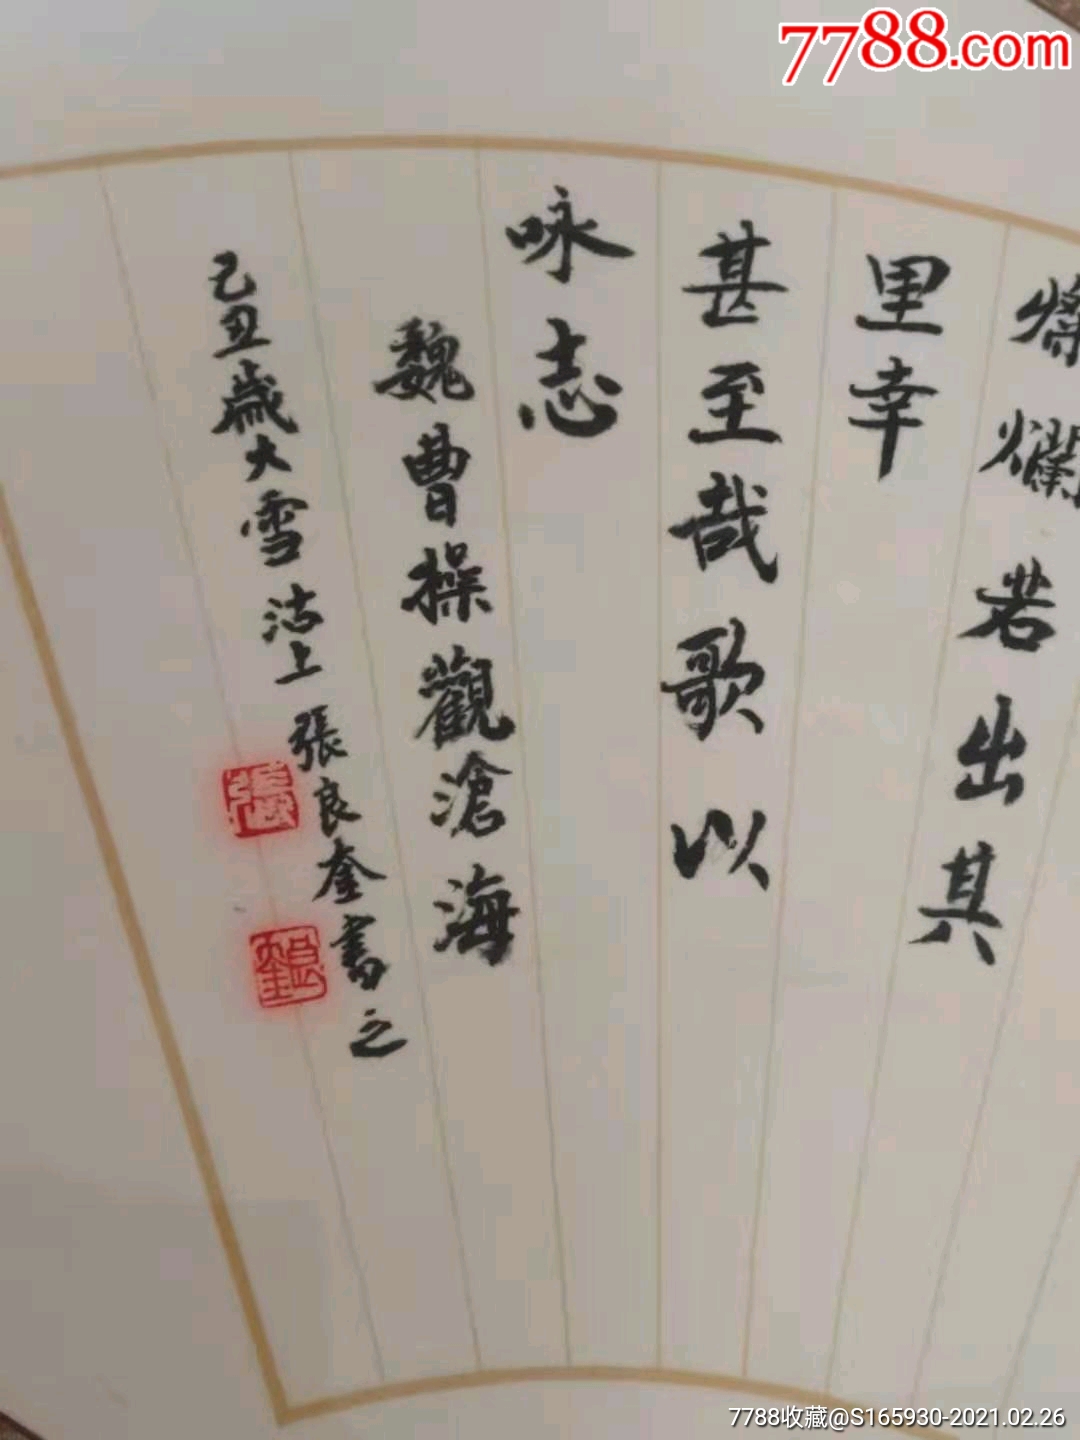 7788.com
燦爛若出其
里幸
甚至哉歌以
咏志
魏曹操觀滄海
己丑歲大雪沽上張良奎書之
7788收藏@S165930-2021.02.26